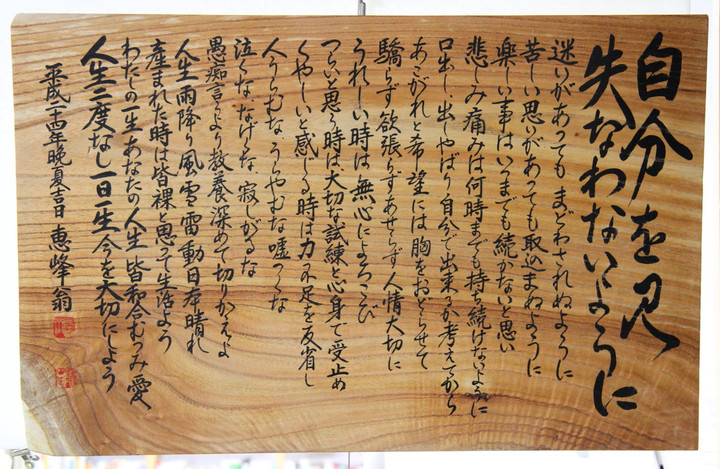 自分を見
失なわないように
迷いがあっても まどわされぬように
苦しい思いがあっても取込まぬように
楽しい事はいつまでも続かないと思い
悲しみ痛みは何時までも持ち続けないように
口出し、出しゃばり自分で出来るか考えてから
あこがれと希望には胸をおどらせて
驕らず欲張らずあせらず人情大切に
うれしい時は無心によろこび
つらいと思う時は大切な試練と心身で受止め
くやしいと感じる時は力不足を反省し
人うらむな うらやむな嘘つくな
泣くな なげくな 寂しがるな
愚痴言うより教養深めて切りかえよ
人生雨降り風雪雷動日本晴れ
産まれた時は皆裸と思って生活よう
わたしの一生あなたの人生 皆和合むつみ愛
人生二度なし一日一生 今を大切にしよう
平成二十四年晩夏吉日 恵峰翁